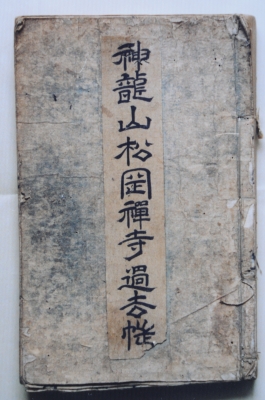 神龍山松岡禪寺過去帳